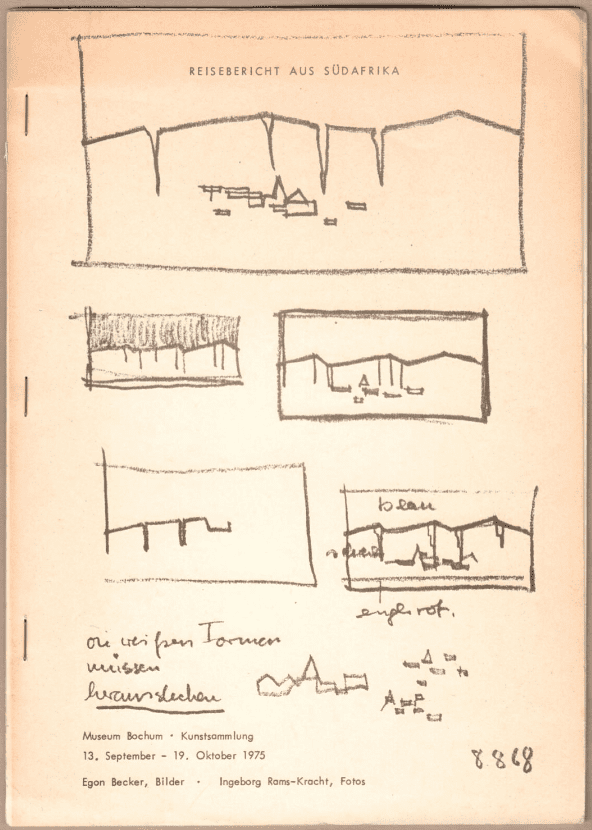 REISEBERICHT AUS SÜDAFRIKA
blau
englrot.
die weißen Formen
müssen
herausstechen
Museum Bochum · Kunstsammlung
13. September – 19. Oktober 1975
8868
Egon Becker, Bilder · Ingeborg Rams-Kracht, Fotos